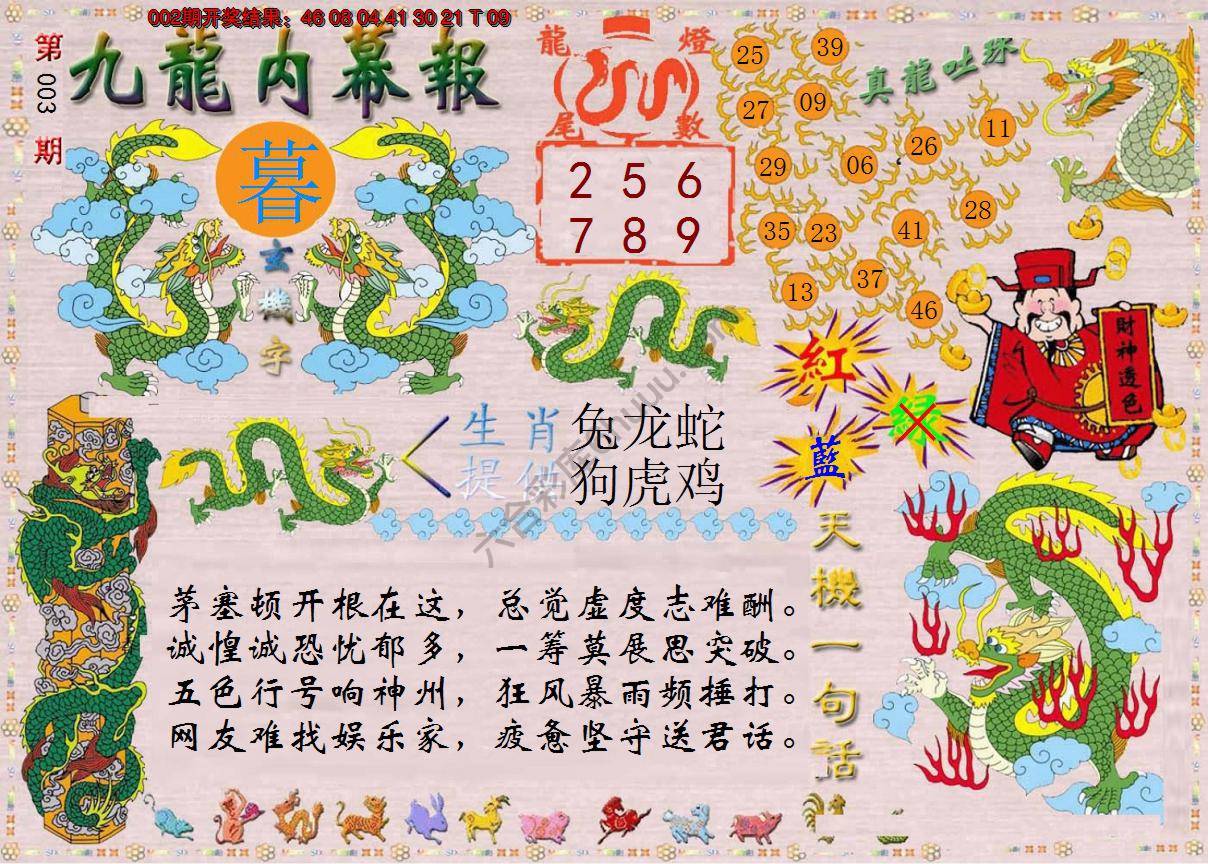 002期开奖结果：46 08 04 41 30 21 T 09
第003期
九龍内幕報
暮
玄機字
龍燈
尾數
2 5 6
7 8 9
真龍吐珠
25
39
27
09
29
06
26
11
35
23
41
28
13
37
46
紅
绿
藍
財神透色
生肖
提供
兔龙蛇
狗虎鸡
天機一句話
茅塞顿开根在这，总觉虚度志难酬。
诚惶诚恐忧郁多，一筹莫展思突破。
五色行号响神州，狂风暴雨频捶打。
网友难找娱乐家，疲惫坚守送君话。